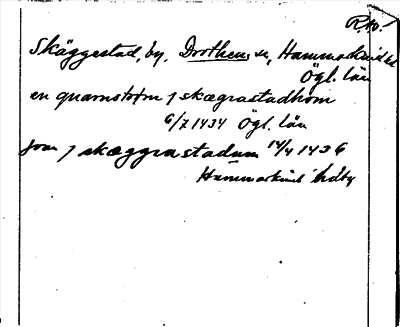 R.40.
Skäggestad, by, Drothems sn, Hammarkinds hd
Ögl. län
en quarnstrøm j skægrastadhom
6/7 1434 Ögl. län
joan j skæggrastadum 14/4 1436
Hammarkind hdby